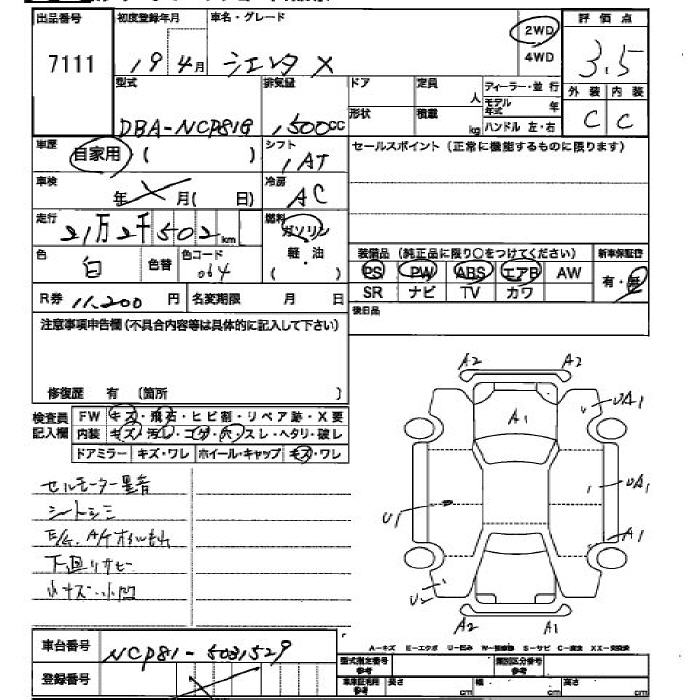 出品番号 初度登録年月 車名・グレード 2WD 4WD 評価点
7111 19年4月 シエンタ X 3.5
型式 排気量 ドア 定員 人 ディーラー・並行 外装 内装
DBA-NCP81G 1,500cc 形状 積載 kg モデル年式 年 ハンドル 左・右 C C
車歴 自家用 ( ) シフト 1AT セールスポイント(正常に機能するものに限ります)
車検 年 月( 日) 冷房 AC
走行 21万2千502km 燃料 ガソリン 軽・油 ( )
色 白 色替 色コード 064
装備品(純正品に限り○をつけてください) 新車保証書
PS PW ABS エアB AW 有・無
SR ナビ TV カワ
R券 11,200円 名変期限 月 日 後日品
注意事項申告欄(不具合内容等は具体的に記入して下さい)
修復歴 有 (箇所 )
検査員記入欄 FW キズ・飛石・ヒビ割・リペア跡・X要
内装 キズ・汚レ・コゲ・穴・スレ・ヘタリ・破レ
ドアミラー キズ・ワレ ホイール・キャップ キズ・ワレ
セルモーター異音
シートシミ
下廻リサビ
小キズ・小凹
A2 A2
A1 UA1
U1 UA1
A1
U2
A2 A1
A-キズ E-エクボ U-凹み W-補修跡 S-サビ C-腐食 XX-交換済
車台番号 NCP81-5031529
型式指定番号 類別区分番号
登録番号 車庫証明用参考 長さ cm 幅 cm 高さ cm